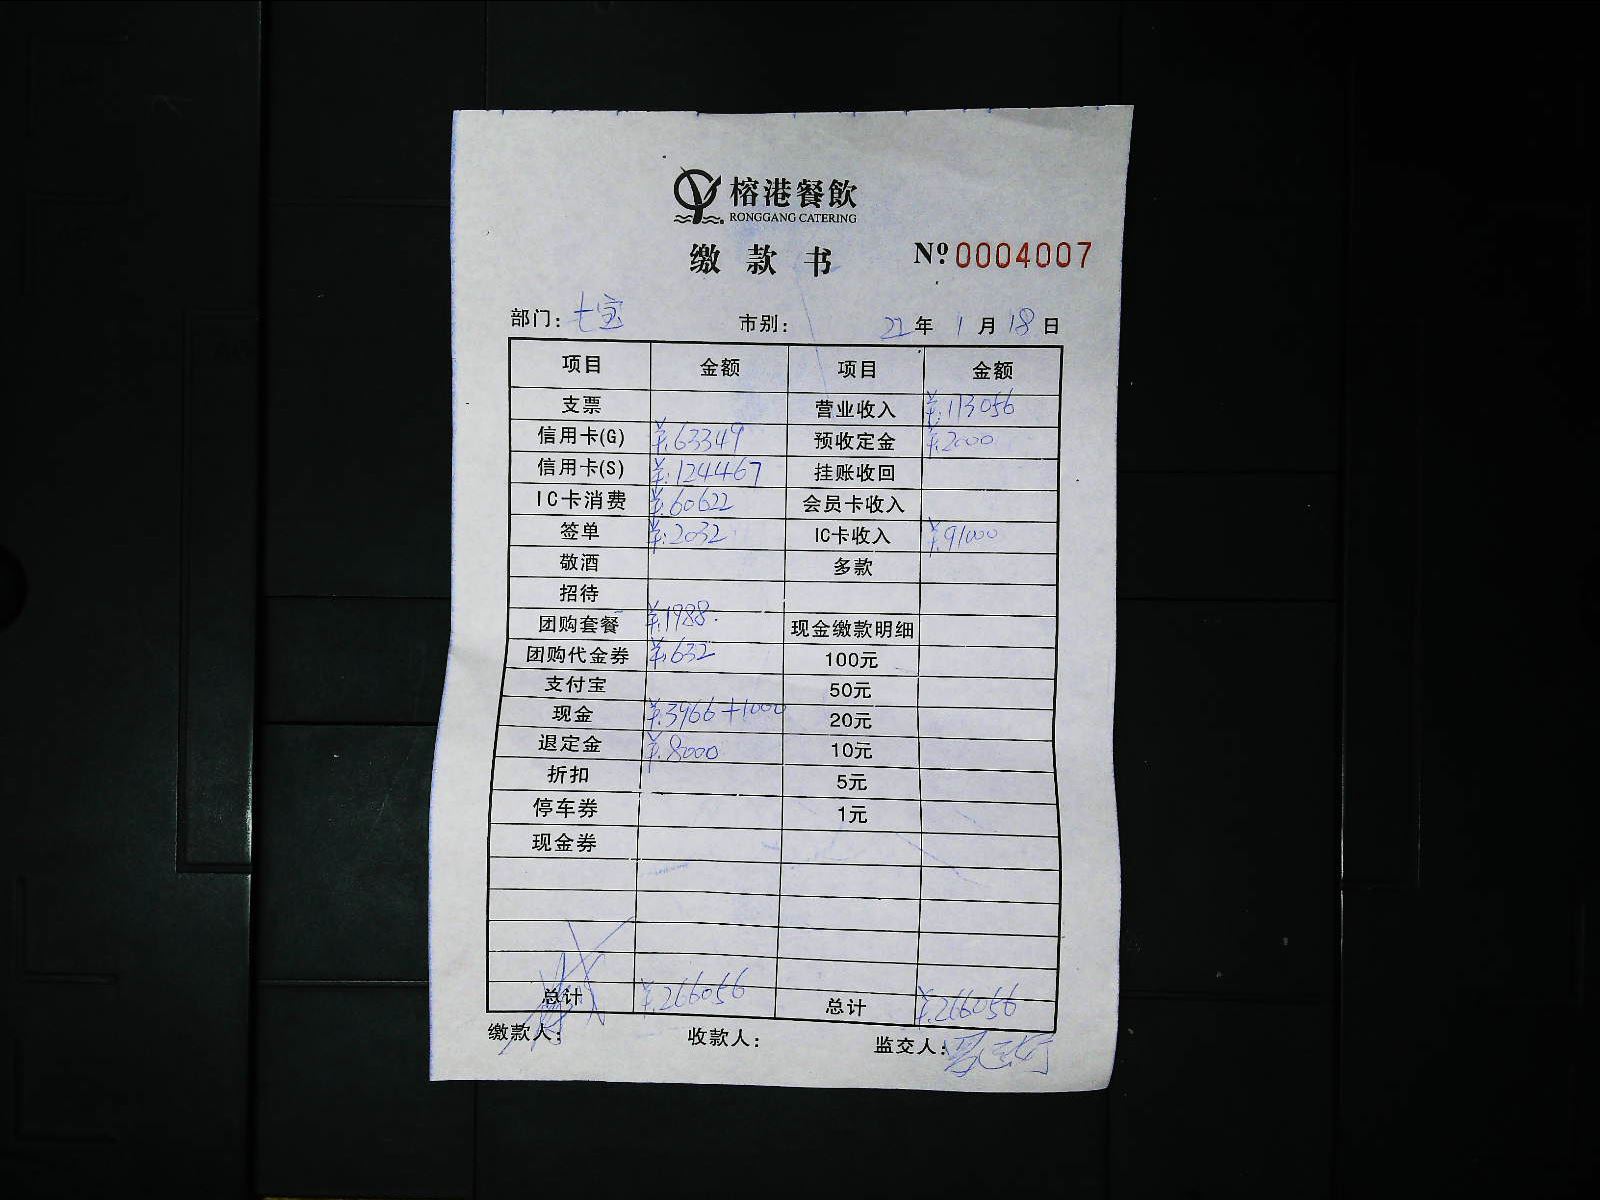 榕港餐飲
RONGGANG CATERING
缴款书 Nº 0004007
部门: 七宝 市别: 22年 1月 18日
项目 金额 项目 金额
支票 营业收入 ¥:173056
信用卡(G) ¥:63349 预收定金 ¥:2000
信用卡(S) ¥:124467 挂账收回
IC卡消费 ¥:60622 会员卡收入
签单 ¥:2032 IC卡收入 ¥:91000
敬酒 多款
招待
团购套餐 ¥:1988. 现金缴款明细
团购代金券 ¥:632 100元
支付宝 50元
现金 ¥:3966+1000 20元
退定金 ¥:8000 10元
折扣 5元
停车券 1元
现金券
总计 ¥:266056 总计 ¥:266056
缴款人: 收款人: 监交人: